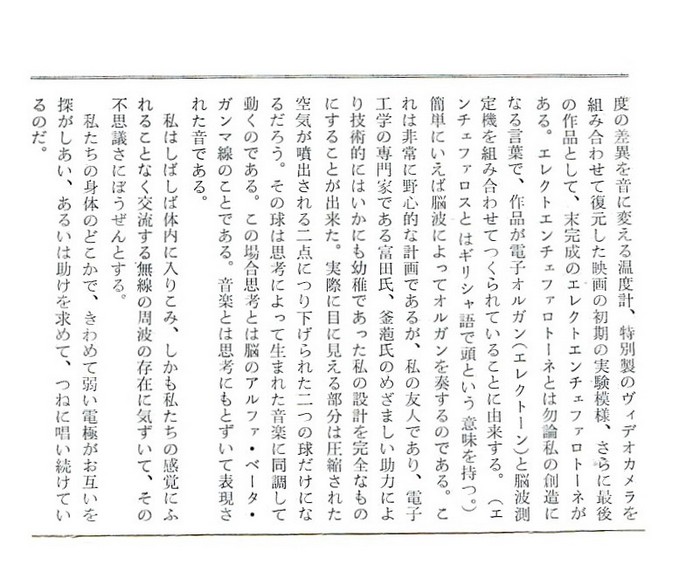 度の差異を音に変える温度計、特別製のヴィデオカメラを
組み合わせて復元した映画の初期の実験模様、さらに最後
の作品として、末完成のエレクトエンチェファロトーネが
ある。エレクトエンチェファロトーネとは勿論私の創造に
なる言葉で、作品が電子オルガン(エレクトーン)と脳波測
定機を組み合わせてつくられていることに由来する。(エ
ンチェファロスとはギリシャ語で頭という意味を持つ。)
簡単にいえば脳波によってオルガンを奏するのである。こ
れは非常に野心的な計画であるが、私の友人であり、電子
工学の専門家である富田氏、釜范氏のめざましい助力によ
り技術的にはいかにも幼稚であった私の設計を完全なもの
にすることが出来た。実際に目に見える部分は圧縮された
空気が噴出される二点につり下げられた二つの球だけにな
るだろう。その球は思考によって生まれた音楽に同調して
動くのである。この場合思考とは脳のアルファ・ベータ・
ガンマ線のことである。音楽とは思考にもとずいて表現さ
れた音である。
私はしばしば体内に入りこみ、しかも私たちの感覚にふ
れることなく交流する無線の周波の存在に気ずいて、その
不思議さにぼうぜんとする。
私たちの身体のどこかで、きわめて弱い電極がお互いを
探がしあい、あるいは助けを求めて、つねに唱い続けてい
るのだ。